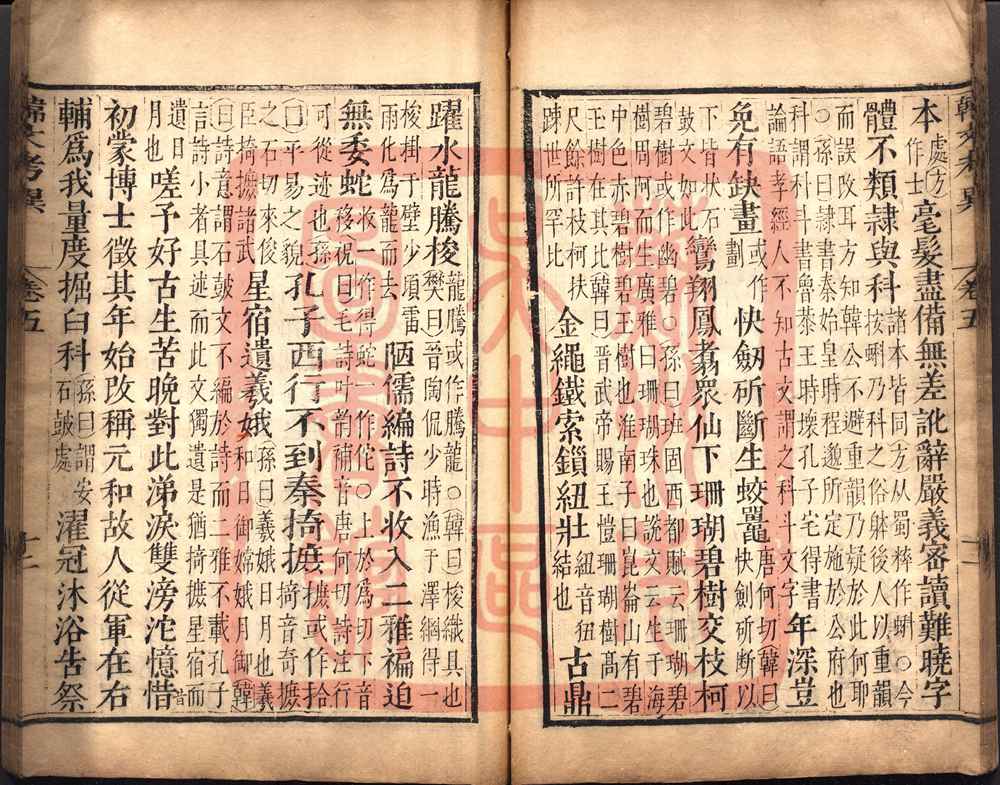 本處方毫髮盡備無差訛辭嚴義密讀難曉字
作士
體不類隸與科諸本皆同方从蜀粹作蝌○今
按蝌乃科之俗躰後人以重韻
而誤改耳方知韓公不避重韻乃疑於此何耶
○孫曰隸書秦始皇時程邈所定施於公府也
科謂科斗書魯恭王時壞孔子宅得書
論語孝經人不知古文謂之科斗文字年深豈
免有缺畫或作快劒斫斷生蛟鼉唐何切韓曰
劃快劍斫斷以
下皆狀石
鼓文如此鸞翔鳳翥衆仙下珊瑚碧樹交枝柯
碧樹或作幽碧○孫曰班固西都賦云珊瑚碧
樹周阿而生廣雅曰珊瑚珠也說文云生于海
中色赤碧樹碧玉樹也淮南子曰崑崙山有碧
玉樹在其比韓曰晉武帝賜王愷珊瑚樹高二
尺餘許枝柯扶
踈世所罕比金繩鐵索鎖紐壯紐音狃
結也古鼎
躍水龍騰梭龍騰或作騰龍○韓曰梭織具也
樊曰晉陶侃少時漁于澤網得一
梭掛于壁少項雷
雨化爲龍而去陋儒編詩不收入二雅褊迫
無委蛇收一作得蛇一作佗○上於爲切下音
移祝曰毛詩叶韵補音唐何切詩注行
可從迹也孫
曰平易之貌孔子西行不到秦掎摭摭或作拾
掎音奇摭
之石切來俊
臣掎摭諸武星宿遺羲娥孫曰羲娥日月也羲
和日御嫦娥月御韓
曰詩意謂石鼓文不編於詩而二雅不載孔子
言詩小者具述而此文獨遺是猶掎摭星宿而
遺日
月也嗟予好古生苦晚對此涕淚雙滂沱憶惜昔
初蒙博士徵其年始改稱元和故人從軍在右
輔爲我量度掘臼科孫曰謂安
石鼓處濯冠沐浴告祭
韓文考異
卷五